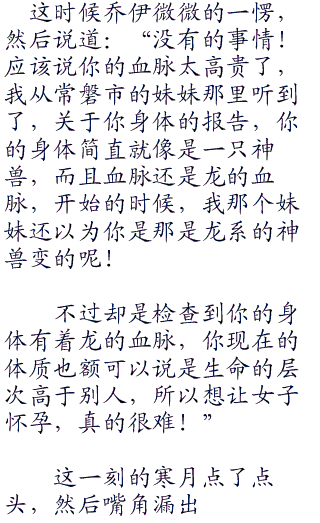 这时候乔伊微微的一愣，
然后说道：“没有的事情！
应该说你的血脉太高贵了，
我从常磐市的妹妹那里听到
了，关于你身体的报告，你
的身体简直就像是一只神
兽，而且血脉还是龙的血
脉，开始的时候，我那个妹
妹还以为你是那是龙系的神
兽变的呢！
不过却是检查到你的身
体有着龙的血脉，你现在的
体质也额可以说是生命的层
次高于别人，所以想让女子
怀孕，真的很难！”
这一刻的寒月点了点
头，然后嘴角漏出